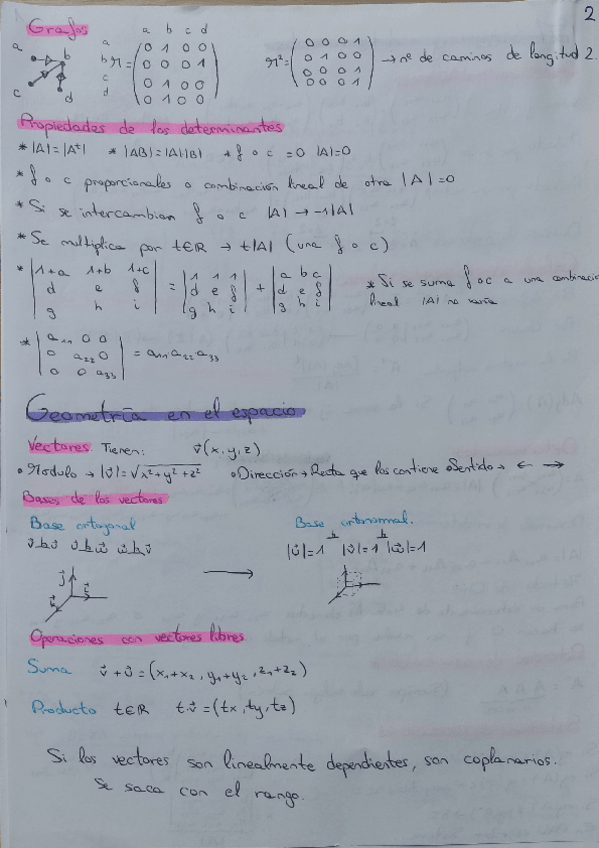 2
Grafos
a b c d
a b c d
M = (0 1 0 0 / 0 0 0 1 / 0 1 0 0 / 0 1 0 0)
M² = (0 0 0 1 / 0 1 0 0 / 0 0 0 1 / 0 0 0 1) → nº de caminos de longitud 2.
a b c d
Propiedades de los determinantes
* |A| = |Aᵗ| * |AB| = |A||B| * f o c = 0 |A| = 0
* f o c proporcionales o combinación lineal de otra |A| = 0
* Si se intercambian f o c |A| → -1|A|
* Se multiplica por t∈R → t|A| (una f o c)
* |1+a 1+b 1+c / d e f / g h i| = |1 1 1 / d e f / g h i| + |a b c / d e f / g h i| * Si se suma f o c a una combinacion
lineal |A| no varía
* |a₁₁ 0 0 / 0 a₂₂ 0 / 0 0 a₃₃| = a₁₁ a₂₂ a₃₃
Geometría en el espacio
Vectores. Tienen: v⃗(x, y, z)
• Modulo → |v⃗| = √x²+y²+z² • Dirección → Recta que los contiene • Sentido → ← →
Bases de los vectores
Base ortogonal Base ortonormal.
|u⃗|=1 |v⃗|=1 |w⃗|=1
Operaciones con vectores libres
Suma v⃗ + u⃗ = (x₁+x₂, y₁+y₂, z₁+z₂)
Producto t∈R t·v⃗ = (tx, ty, tz)
Si los vectores son linealmente dependientes, son coplanarios.
Se saca con el rango.